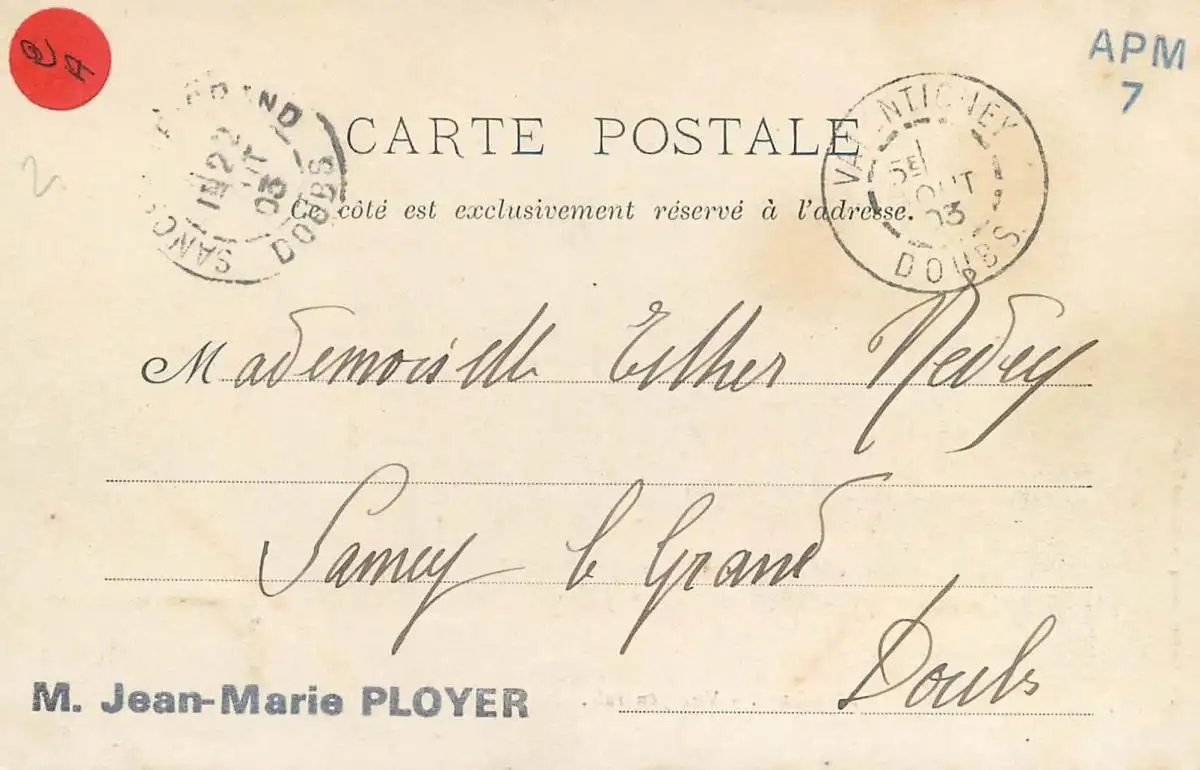 APM
7
CARTE POSTALE
Ce côté est exclusivement réservé à l'adresse.
VALENTIGNEY
AOUT
03
DOUBS
22
03
DOUBS
Mademoiselle Esther Nedey
Sancey le Grand
Doubs
M. Jean-Marie PLOYER